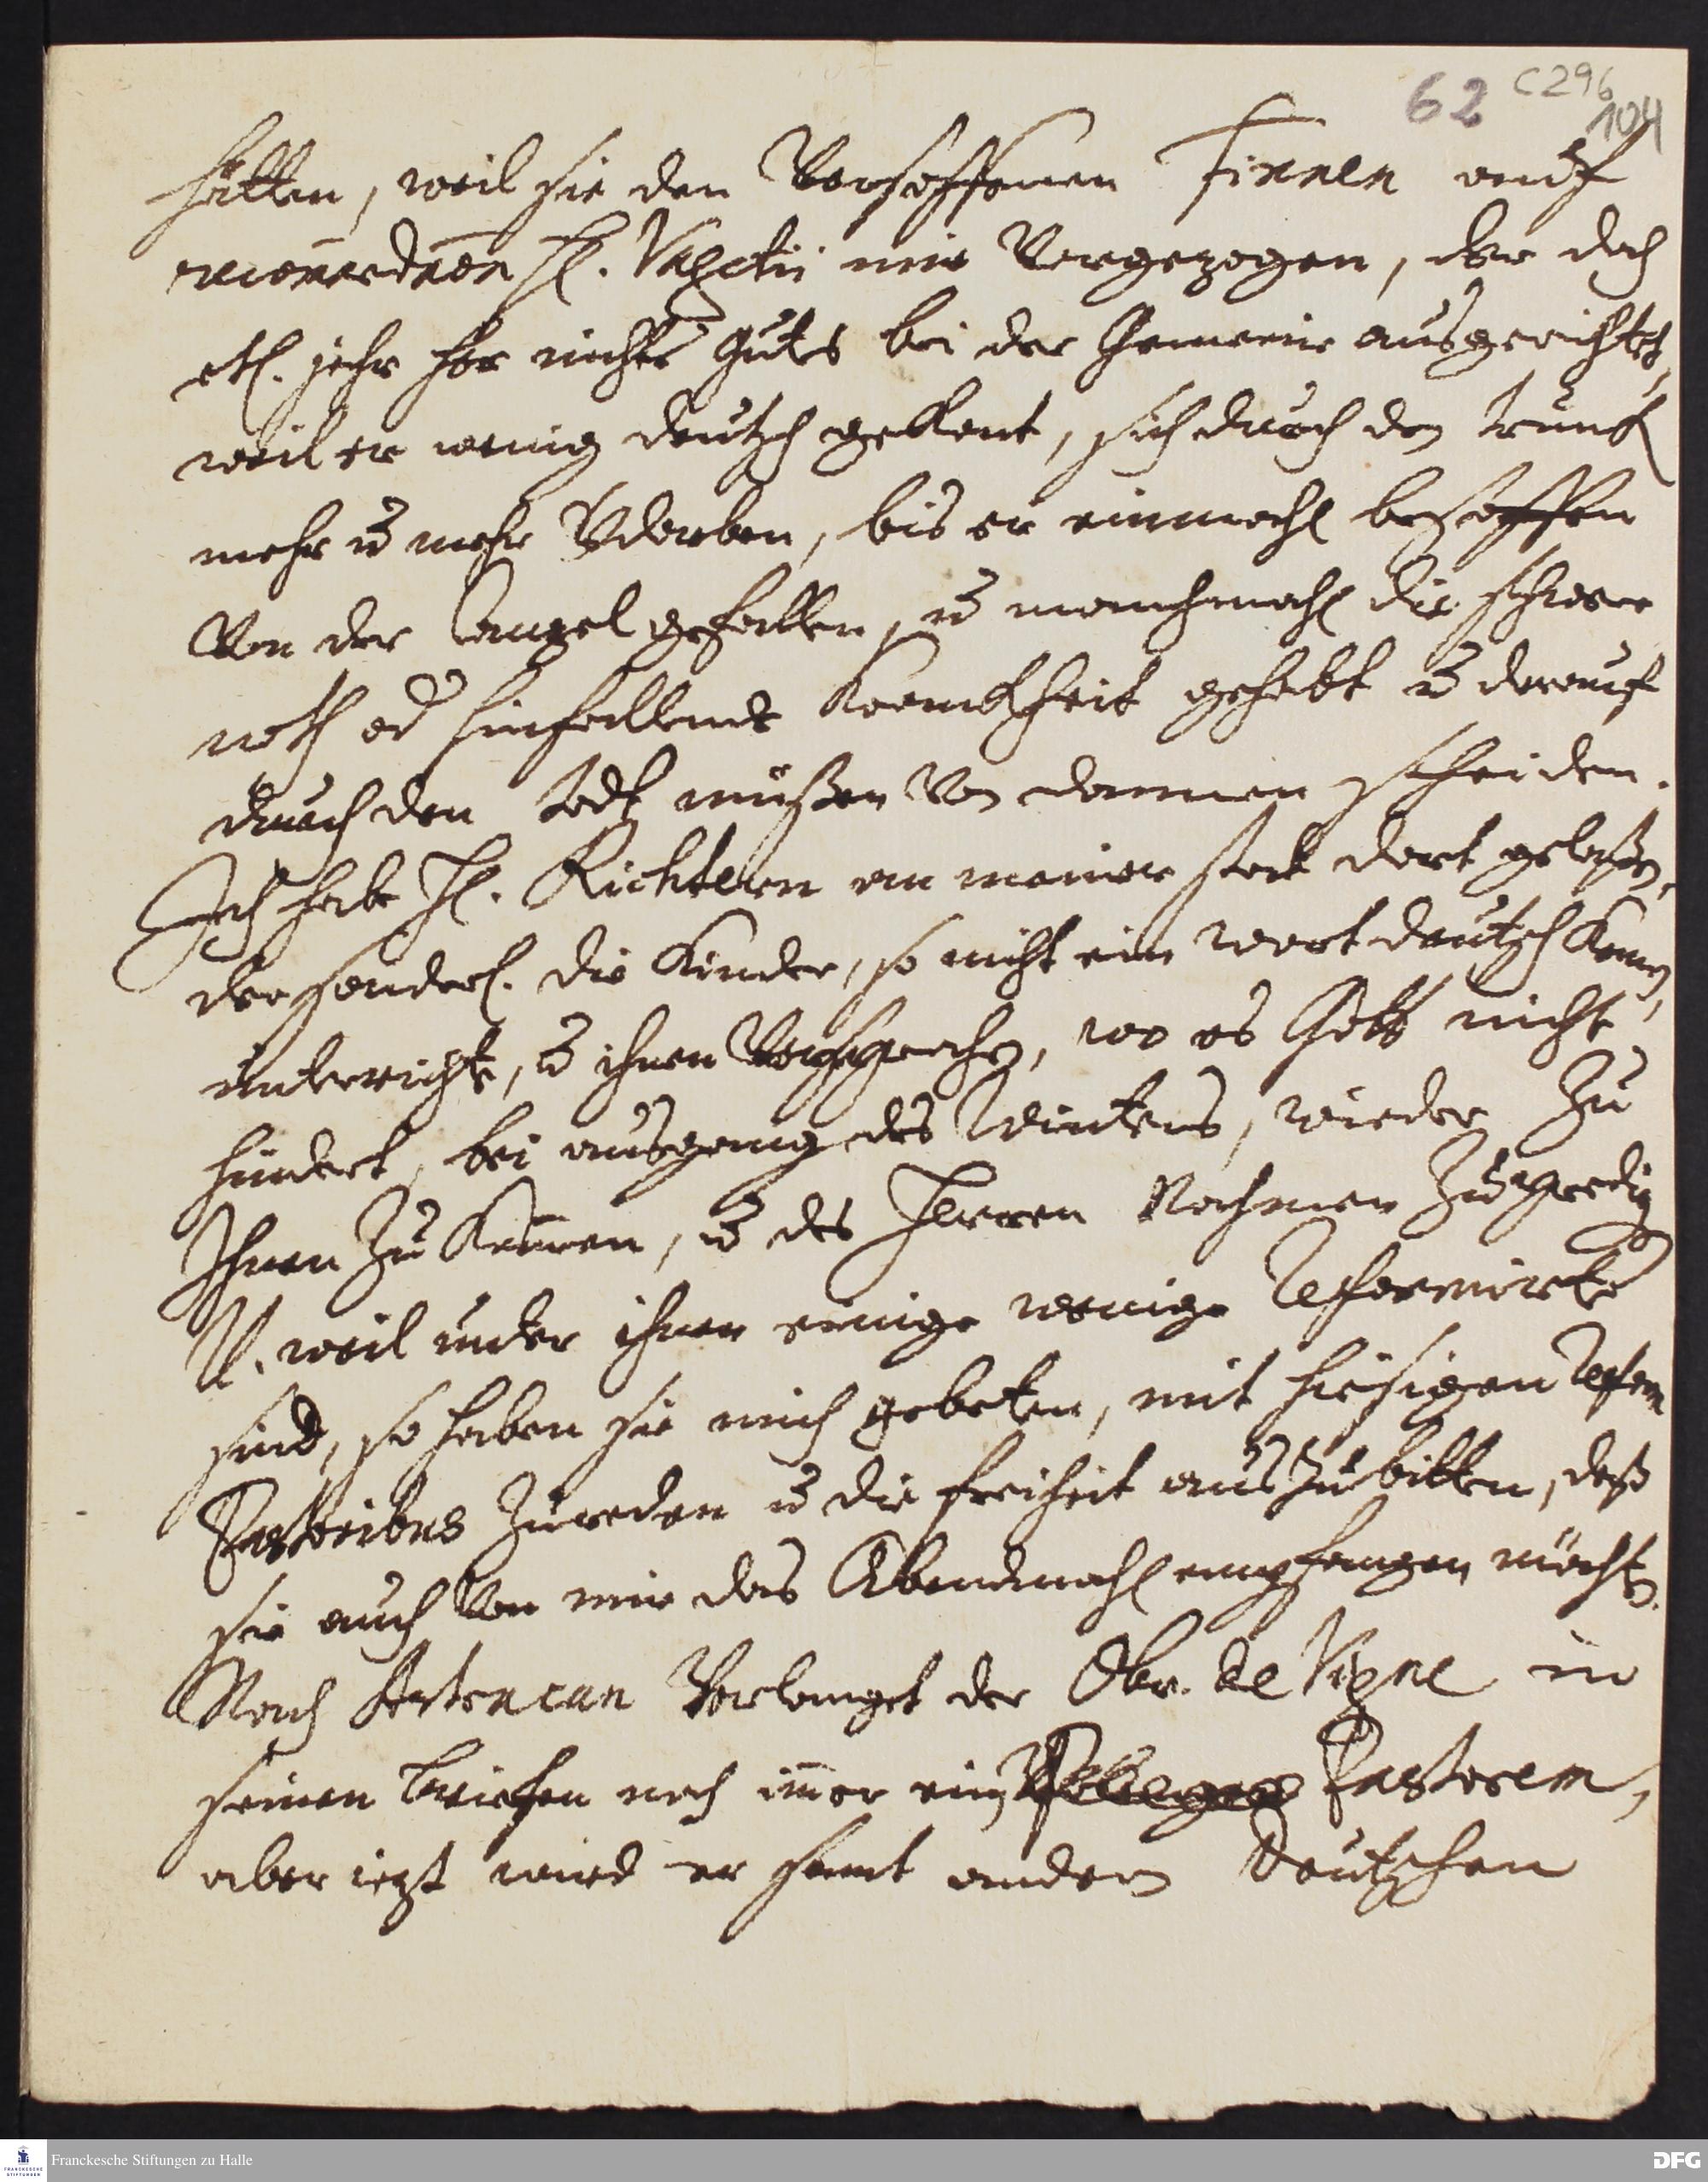 62 C296
104
hätten, weil sie den Versoffenen Finnen auf
recom̅endaõn H. Vagetii mir Vorgezogen, der doch
etl. jahr her nichts Gutes bei der Gemeine ausgerichtet,
weil er wenig deutsch gekont, sich durch den trunck
mehr u mehr Verderben, bis er einmahl besoffen
Von der Cantzel gefallen, u manchmahl die schwere
noth od hinfallende Kranckheit gehabt u darauf
durch den todt müßen Von dannen scheiden.
Ich habe H. Richtern an meiner statt dort gelaßen,
der sonderl. die Kinder, so nicht ein wort deutsch können,
unterrichte, u ihnen Vorspreche, wo es Gott nicht
hindert, bei ausgang des Winters, wieder zu
Ihnen zu kom̅en, u des Herren Nahmen zu predigen
U. weil unter ihnen einige wenige Reformirte
sind, so haben sie mich gebeten, mit hiesigen Reform
Pastoribus zu reden u die freiheit aus zu bitten, daß
sie auch Von mir das Abendmahl empfangen möchten.
Nach Astracan Verlanget der Obr. de Vigne in
seinen briefen noch im̅er einen Pastorem,
aber iezt wird er samt andern Deutschen
Franckesche Stiftungen zu Halle
DFG